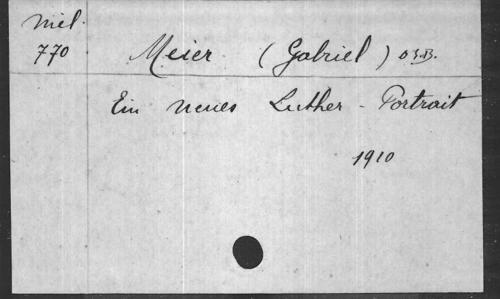 Mél.
770
Meier (Gabriel) O.S.B.
Ein neues Luther-Portrait
1910